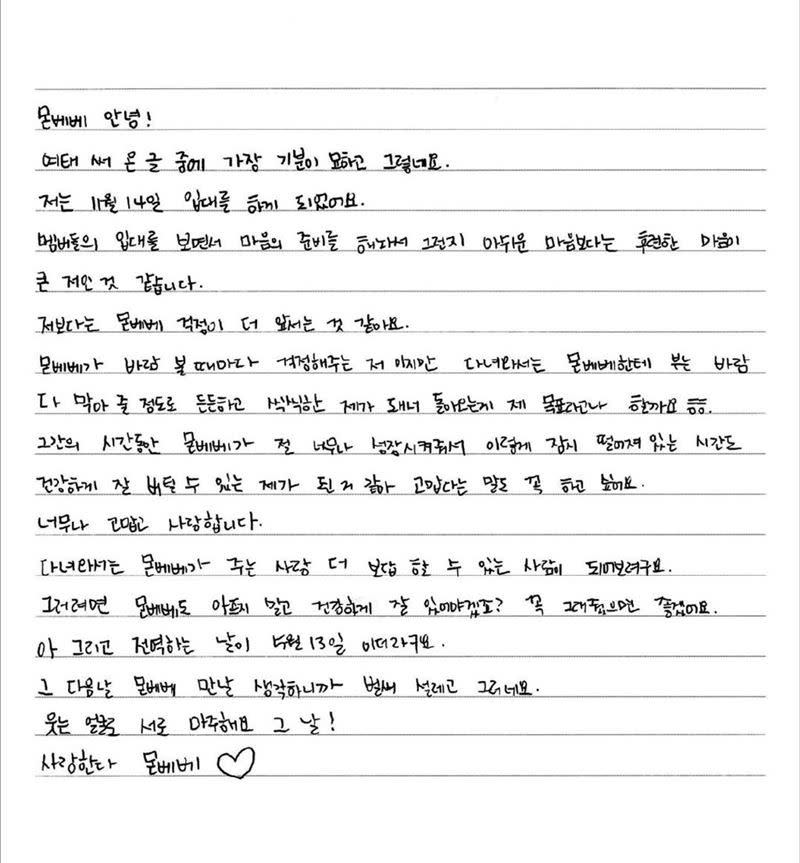 몬베베 안녕!
여태 써 온 글 중에 가장 기분이 묘하고 그렇네요.
저는 11월 14일 입대를 하게 되었어요.
멤버들의 입대를 보면서 마음의 준비를 해놔서 그런지 아쉬운 마음보다는 후련한 마음이
큰 저인 것 같습니다.
저보다는 몬베베 걱정이 더 앞서는 것 같아요.
몬베베가 바람 불 때마다 걱정해주는 저 이지만 다녀와서는 몬베베한테 부는 바람
다 막아 줄 정도로 든든하고 씩씩한 제가 돼서 돌아오는게 제 목표라고나 할까요 흐흐.
그간의 시간동안 몬베베가 절 너무나 성장시켜줘서 이렇게 잠시 떨어져 있는 시간도
건강하게 잘 버틸 수 있는 제가 된 거 같아 고맙다는 말도 꼭 하고 싶어요.
너무나 고맙고 사랑합니다.
다녀와서는 몬베베가 주는 사랑 더 보답 할 수 있는 사람이 되어보려구요.
그러려면 몬베베도 아프지 말고 건강하게 잘 있어야겠죠? 꼭 그래줬으면 좋겠어요.
아 그리고 전역하는 날이 5월 13일 이더라구요.
그 다음날 몬베베 만날 생각하니까 벌써 설레고 그러네요.
웃는 얼굴로 서로 마주해요 그 날!
사랑한다 몬베베 ♡